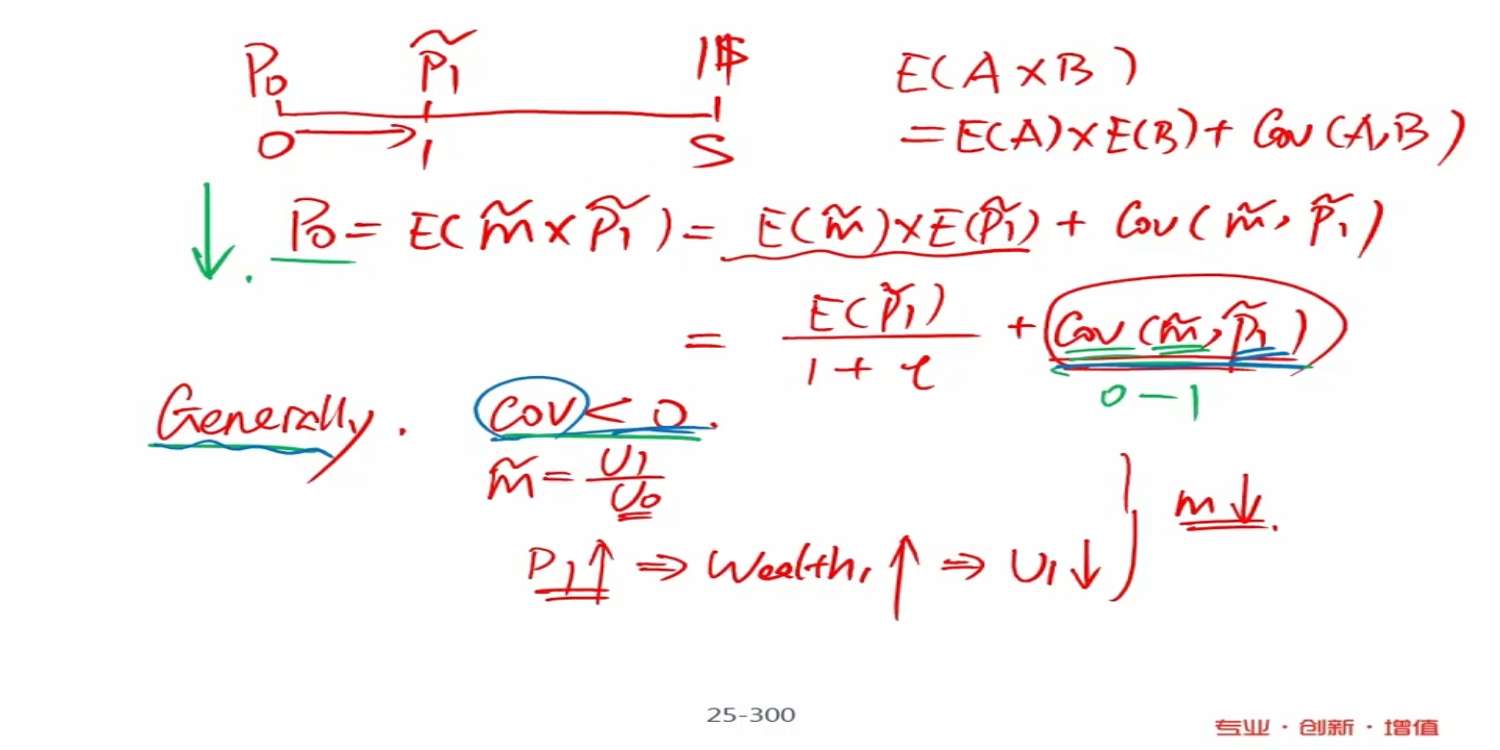 P₀ P̃₁ 1$
0 → 1 S
E(A×B)
=E(A)×E(B)+Cov(A,B)
↓. P₀=E(m̃×P̃₁)=E(m̃)×E(P̃₁)+Cov(m̃,P̃₁)
= E(P̃₁)/(1+r) + Cov(m̃,P̃₁)
0-1
Generally. Cov<0.
m̃=U₁/U₀
P₁↑ ⇒ Wealth₁↑ ⇒ U₁↓ } m↓.
25-300
专业·创新·增值